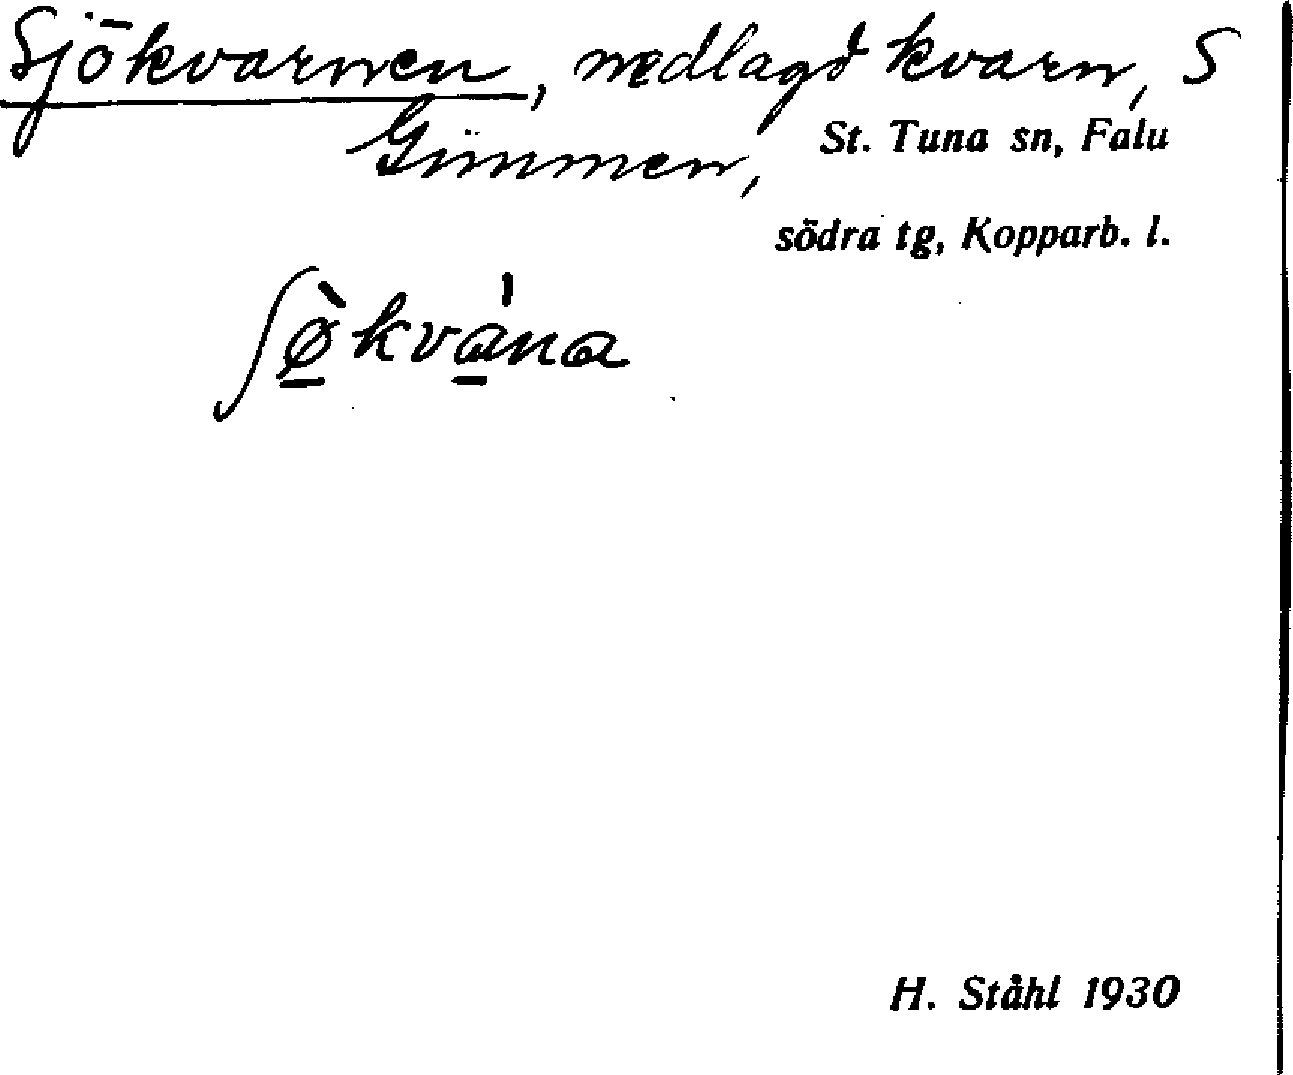 Sjökvarnen, nedlagd kvarn, S
Gimmen, St. Tuna sn, Falu
södra tg, Kopparb. l.
ʃø̠̀kva̠̍na
H. Ståhl 1930